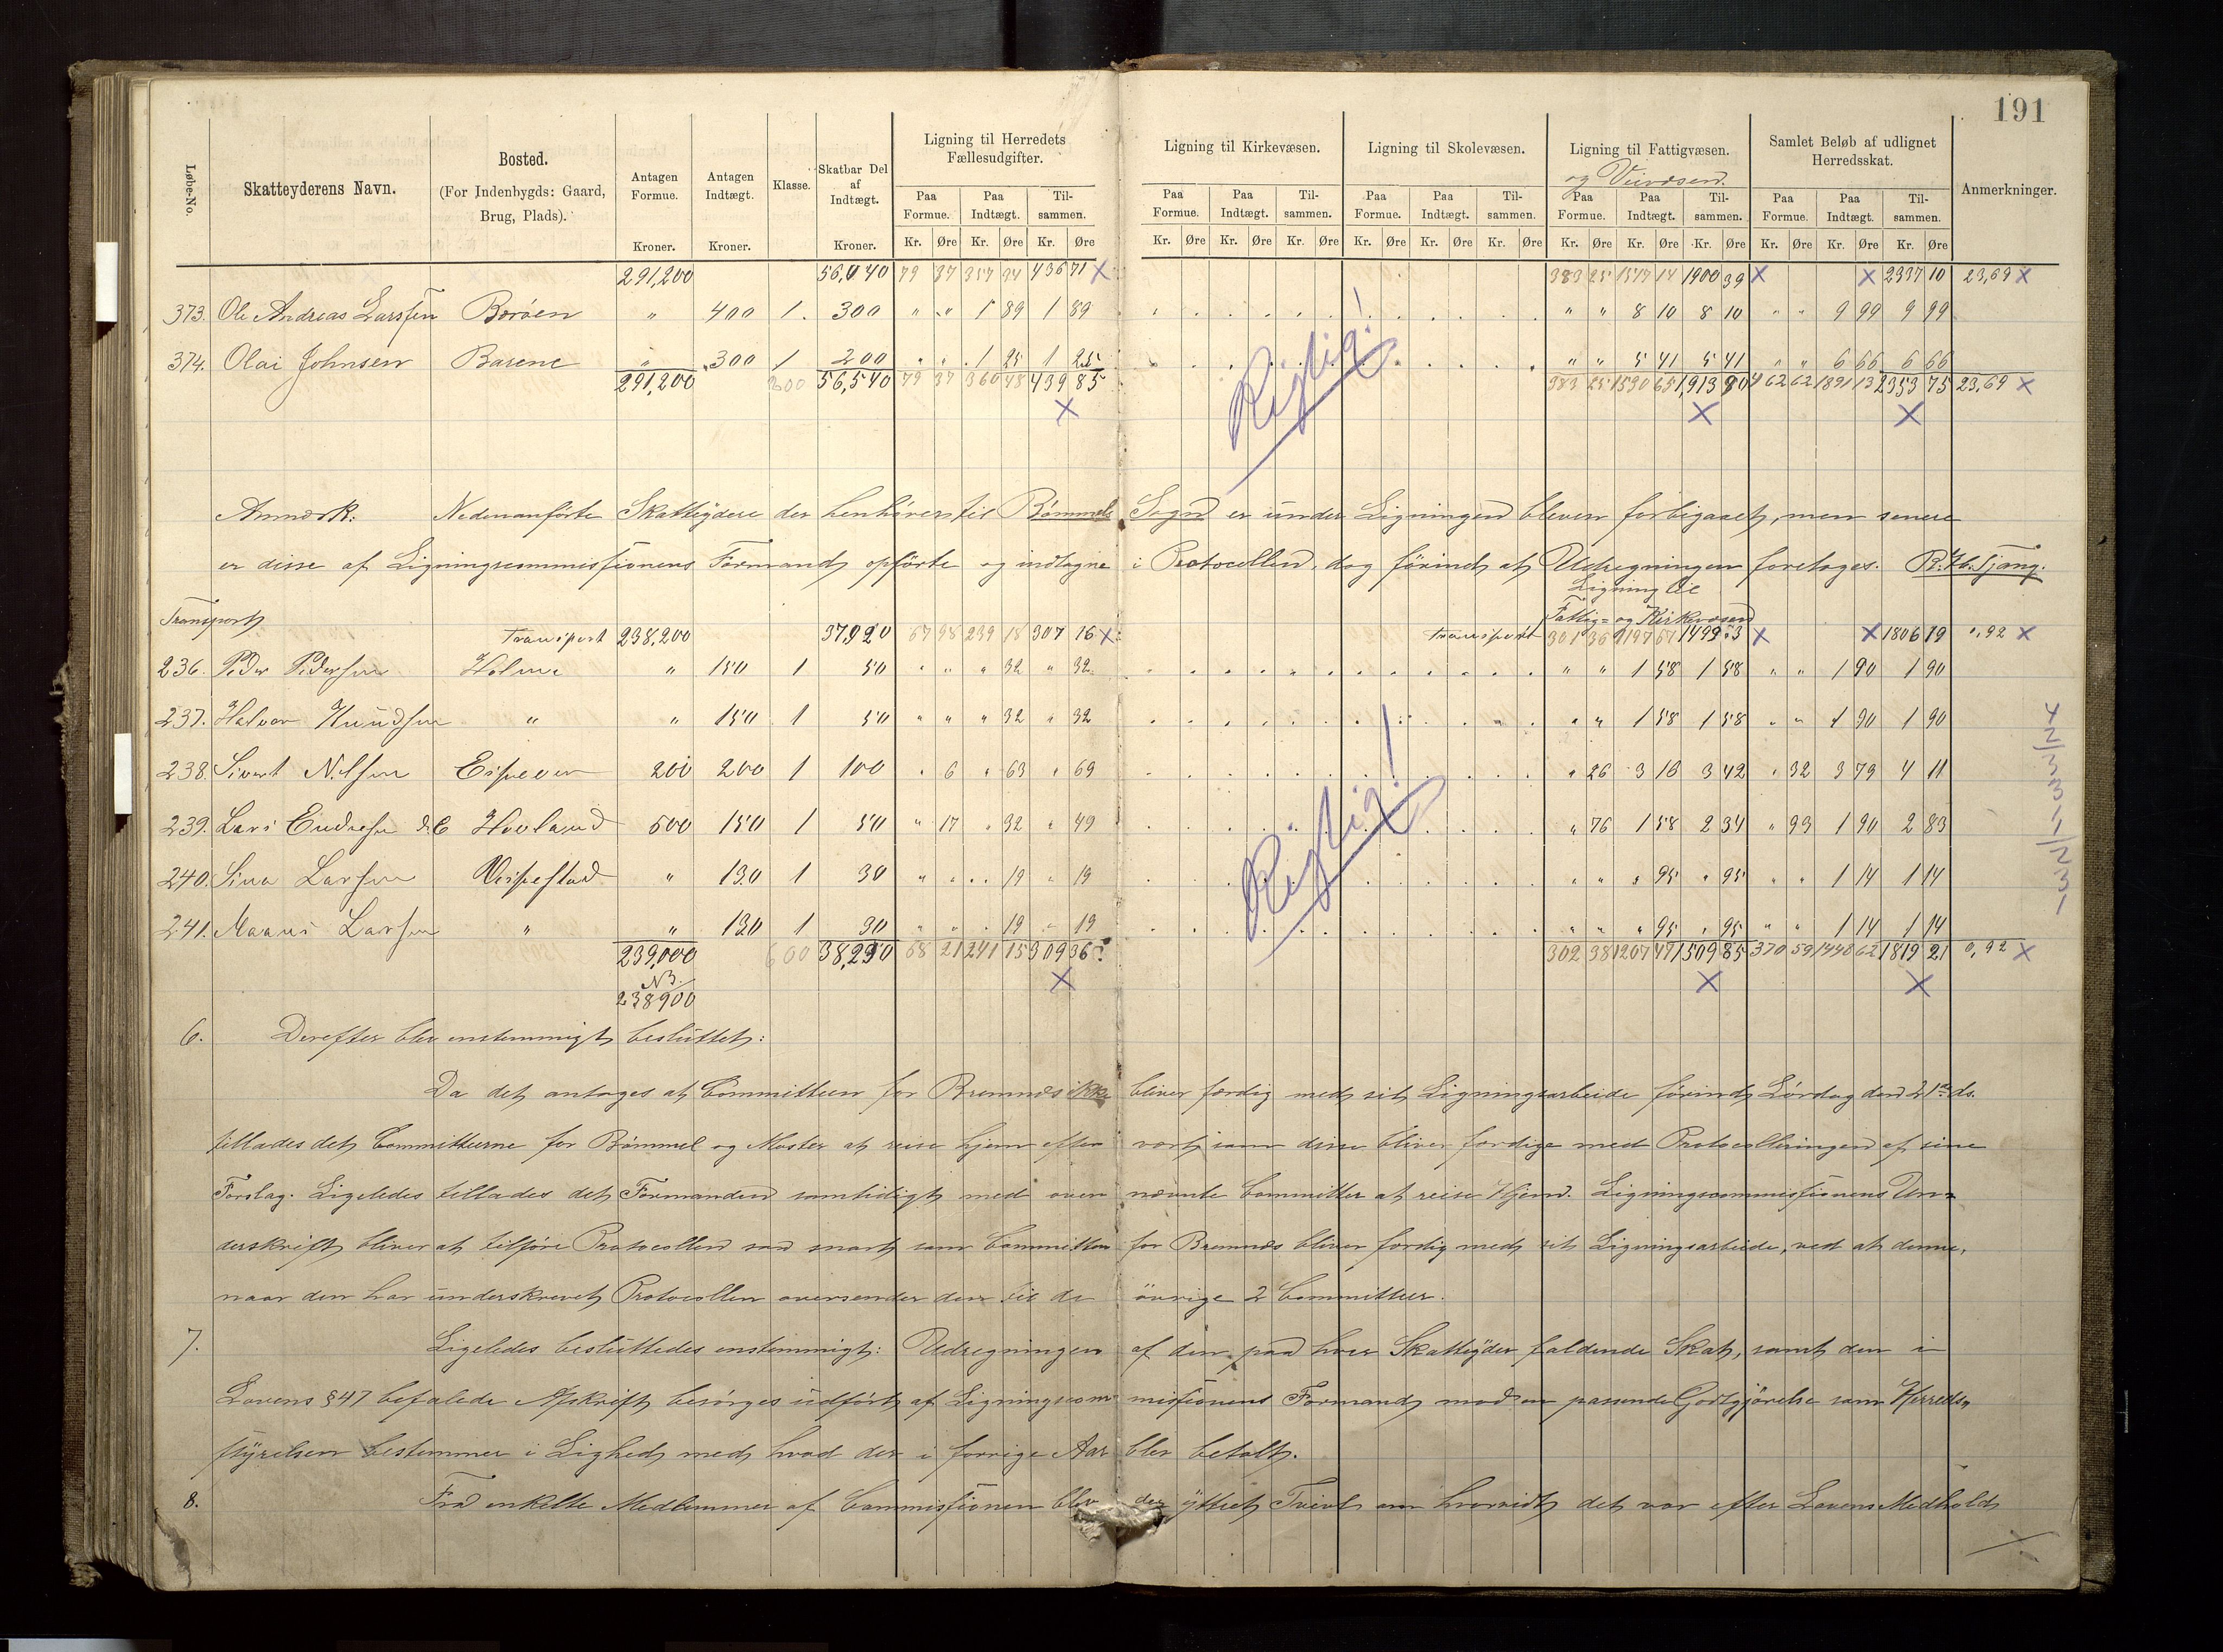 191
Løbe-No. Skatteyderens Navn. Bosted. (For Indenbygds: Gaard, Brug, Plads). Antagen Formue. Kroner. Antagen Indtægt. Kroner. Klasse. Skatbar Del af Indtægt. Kroner. Ligning til Herredets Fællesudgifter. Ligning til Kirkevæsen. Ligning til Skolevæsen. Ligning til Fattigvæsen. og Veivæsen. Samlet Beløb af udlignet Herredsskat. Anmerkninger.
Paa Formue. Paa Indtægt. Til-sammen. Paa Formue. Paa Indtægt. Til-sammen. Paa Formue. Paa Indtægt. Til-sammen. Paa Formue. Paa Indtægt. Til-sammen. Paa Formue. Paa Indtægt. Til-sammen.
Kr. Øre Kr. Øre Kr. Øre Kr. Øre Kr. Øre Kr. Øre Kr. Øre Kr. Øre Kr. Øre Kr. Øre Kr. Øre Kr. Øre Kr. Øre Kr. Øre Kr. Øre
291,200 56,040 79 37 357 34 436 71 X 383 25 1517 14 1900 39 X X 2337 10 23,69 X
373. Ole Andreas Larssen Borøen " 400 1. 300 " " 1 89 1 89 " " 8 10 8 10 " " 9 99 9 99
374. Olai Johnsen Barene " 300 1 200 " " 1 25 1 25 " " 5 41 5 41 " " 6 66 6 66
291,200 300 56,540 79 37 360 48 439 85 383 25 1530 65 1,913 90 462 62 1891 13 2353 75 23,69 X
X X X
Rigtig!
Anmærk: Nedenanførte Skatteydere der henhører til Bømmels Sogn er under Ligningen bleven forbigaaet, men senere
er disse af Ligningscommissionens Formand opførte og indtagne i Protocollen, dog førind at Udregningen foretoges.
Ligning til
Fattig- og Kirkevæsen
Transport
Transport 238,200 37,920 67 98 239 18 307 16 X Transport 301 36 1197 67 1499 03 X X 1806 19 0,92 X
236. Peder Pedersen Holme " 150 1 50 " " " 32 " 32 " " 1 58 1 58 " " 1 90 1 90
237. Halvor Knudsen " " 150 1 50 " " " 32 " 32 " " 1 58 1 58 " " 1 90 1 90
238. Sivert Nilsen Espever 200 200 1 100 " 6 " 63 " 69 " 26 3 16 3 42 " 32 3 79 4 11
239. Lars Endresen Hovland 500 150 1 50 " 17 " 32 " 49 " 76 1 58 2 34 " 93 1 90 2 83
240. Sina Larsen Vespestad " 130 1 30 " " " 19 " 19 " " " 95 " 95 " " 1 14 1 14
241. Maans Larsen " " 130 1 30 " " " 19 " 19 " " " 95 " 95 " " 1 14 1 14
239,000 600 38,230 68 21 241 15 309 36 302 38 1207 47 1509 85 370 59 1448 62 1819 21 0,92 X
NB. X X X
238900
Rigtig!
6. Derefter blev enstemmigt besluttet:
Da det antages at Committeen for Bremnæs ikke bliver færdig med sit Ligningsarbeide førind Lørdag den 21de ds.
tillades det Committeerne for Bømmel og Moster at reise hjem efter vart som disse bliver færdige med Protocolleringen af sine
Forslag. Ligeledes tillades det Formanden samtidigt med oven nævnte Committer at reise Hjem. Ligningscommissionens Un-
derskrift bliver at tilføre Protocollen saa snart som Committeen for Bremnæs bliver færdig med sit Ligningsarbeide, ved at denne,
naar den har underskrevet Protocollen oversender den til de øvrige 2 Committeer.
7. Ligeledes besluttedes enstemmigt: Udregningen af den paa hver Skatteyder faldende Skat, samt den i
Lovens §47 befalede Afskrift besørges udført af Ligningscom missionens Formand mod en passende Godtgjørelse som Herreds-
styrelsen bestemmer i Lighed med hvad der i forrige Aar blev betalt.
8. Fra enkelte Medlemmer af Commissionen blev der yttret Tvivl om hvorvidt det var efter Lovens Medhold